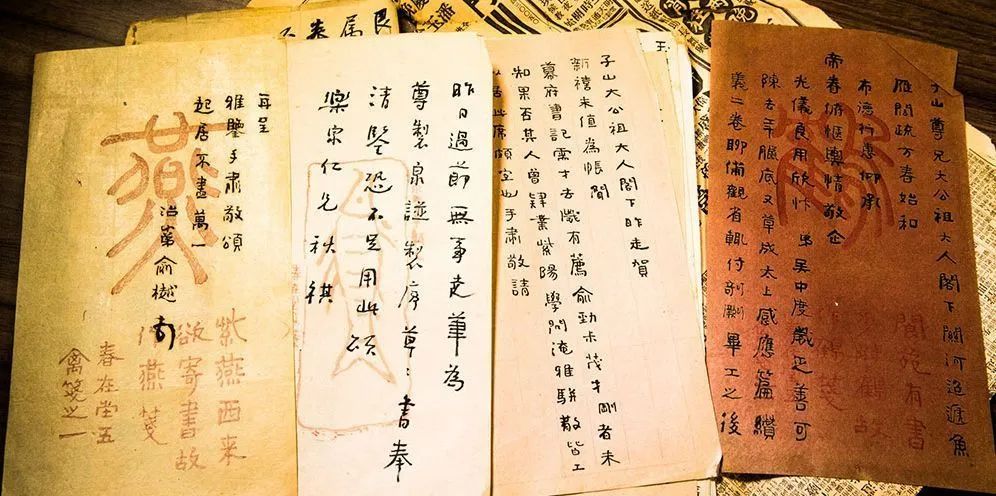 子山尊兄大公祖大人閣下關河迢遞魚
雁闊疏方春始和
布德行惠仰承
帝眷俯愜輿情敬企
光儀良用欣忭 弟吳中度歲無善可
陳去年臘底又草成太上感應篇纘
義二卷聊備觀省輒付剞劂畢工之後
閬苑有書
子山大公祖大人閣下昨走賀
新禧未值為悵聞
幕府書記需才去歲有薦俞勁木茂才剛者未
知果否其人曾肄業紫陽學問淹雅駢散皆工
居此席頗宜也手肅敬請
昨日過節無事走筆為
尊製泉譜製序草〻書奉
清鑒恐不足用此頌
樂宗仁兄秋祺
再呈
雅鑒手肅敬頌
起居不盡萬一
治弟俞樾頓
燕
紫燕西来
欲寄書故
作燕箋
春在堂五
禽箋之一